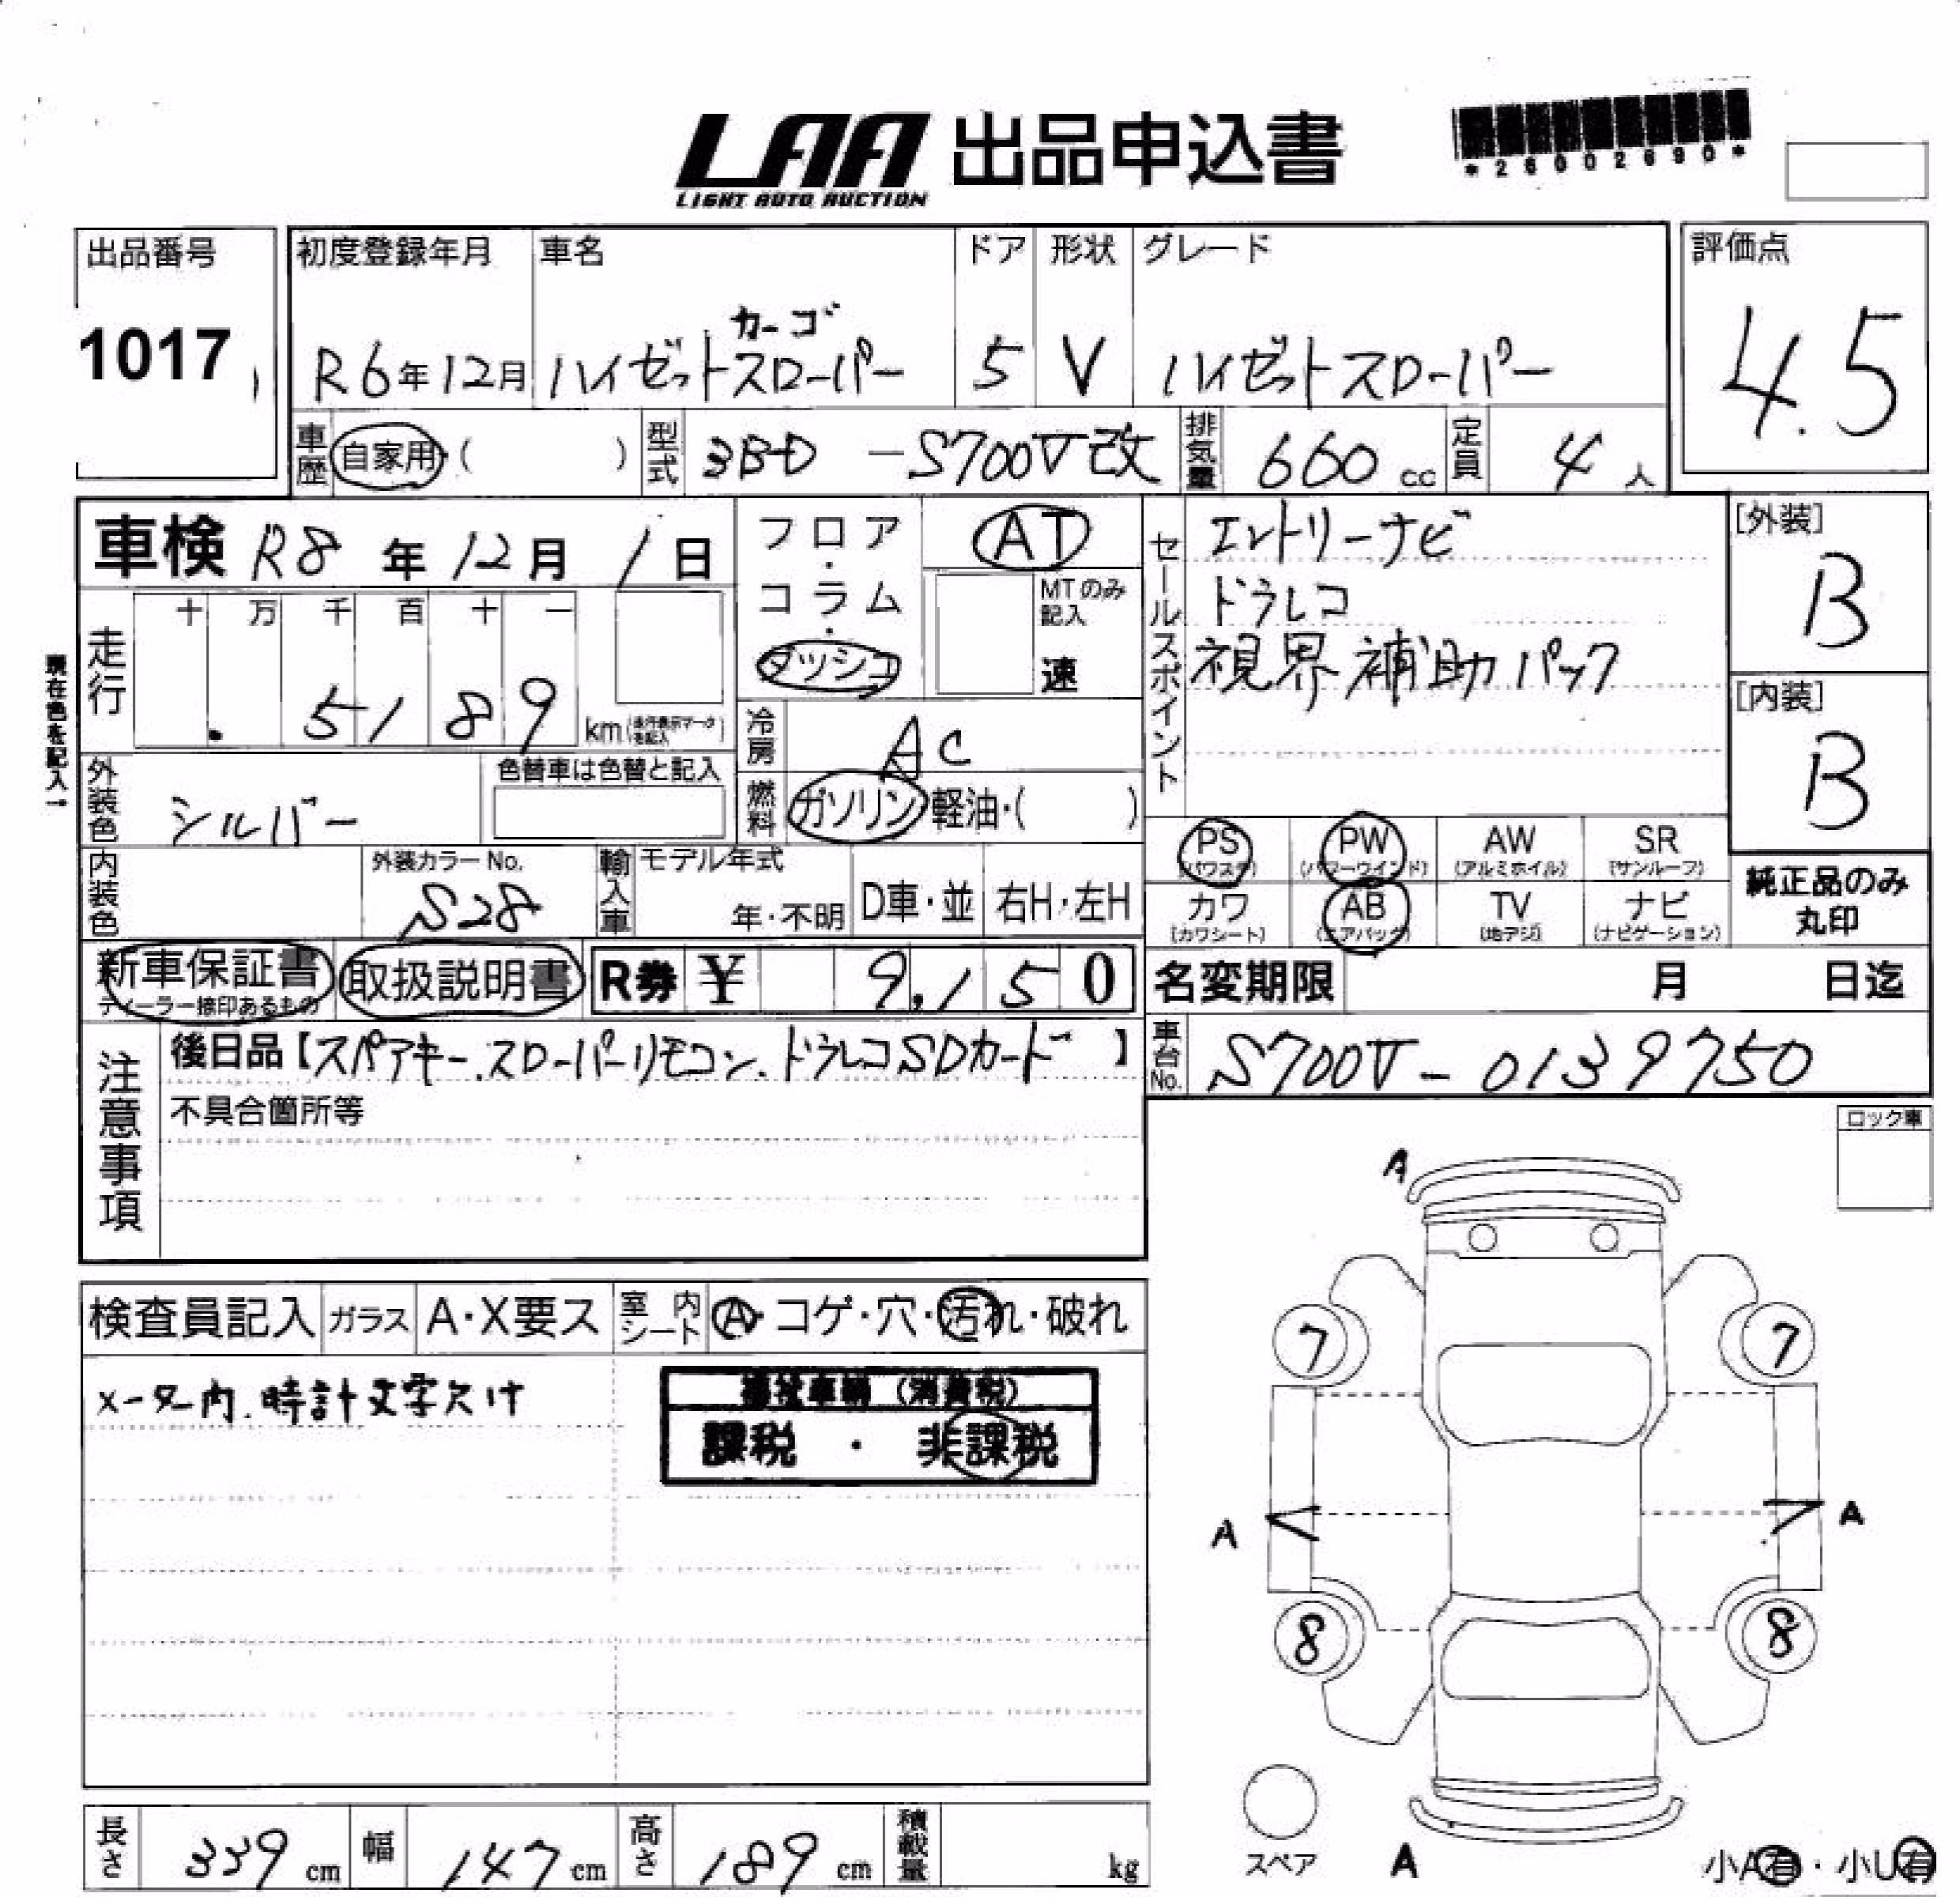 LAA 出品申込書
LIGHT AUTO AUCTION
*26002690*
出品番号
1017
初度登録年月
R6年12月
車名
カーゴ
ハイゼットスローパー
ドア
5
形状
V
グレード
ハイゼットスローパー
評価点
4.5
車歴
自家用・( )
型式
3BD -S700V改
排気量
660 cc
定員
4 人
車検 R8 年 12 月 1 日
走行
十 万 千 百 十 一
5189 km
現在色を記入→
フロア・コラム・ダッシュ
AT
MTのみ記入
速
冷房
AC
燃料
ガソリン・軽油・( )
セールスポイント
エントリーナビ
ドラレコ
視界補助パック
[外装]
B
[内装]
B
外装色
シルバー
色替車は色替と記入
内装色
外装カラーNo.
S28
輸入車
モデル年式
年・不明
D車・並
右H・左H
PS (パワステ)
PW (パワーウインド)
AW (アルミホイル)
SR (サンルーフ)
カワ (カワシート)
AB (エアバック)
TV (地デジ)
ナビ (ナビゲーション)
純正品のみ
丸印
新車保証書
ディーラー捺印あるもの
取扱説明書
R券 ¥ 9,150
名変期限 月 日迄
車台No.
S700V-0139750
注意事項
後日品【スペアキー.スローパーリモコン.ドラレコSDカード】
不具合箇所等
ロック車
検査員記入
ガラス
A・X要ス
室内シート
A・コゲ・穴・汚れ・破れ
メーター内.時計文字欠け
福祉車輌 (消費税)
課税 ・ 非課税
A
7
7
A
A
8
8
スペア
A
小A有・小U有
長さ
339 cm
幅
147 cm
高さ
189 cm
積載量
kg